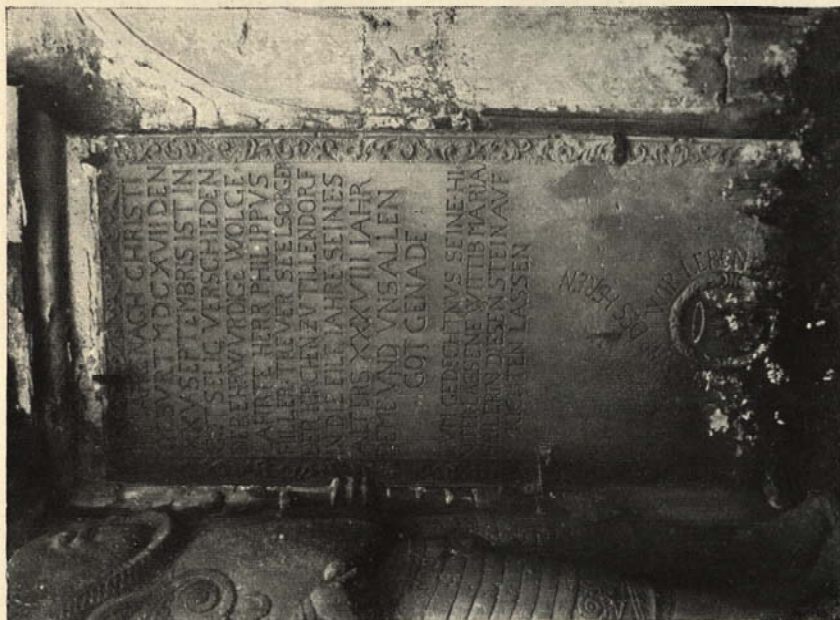 IAHR NACH CHRISTI
GEBVRT MDCXVII DEN
XXV SEPTEMBRIS IST IN
GOTT SELIG VERSCHIEDEN
DER EHRWVRDIGE WOLGE
LARTE HERR PHILIPPVS
HILLER TREVER SEELSORGER
DER KIRCHEN ZV TILLENDORF
IN DIE EILF IAHRE SEINES
ALTERS XXXVIII IAHR
DEME VND VNS ALLEN
GOT GENADE
ZVM GEDECHTNVS SEINE HI
NTERLASSENE WITTIB MARIA
HILLERIN DIESEN STEIN AVF
RICHTEN LASSEN
WIR LEBEN
DES HEREN